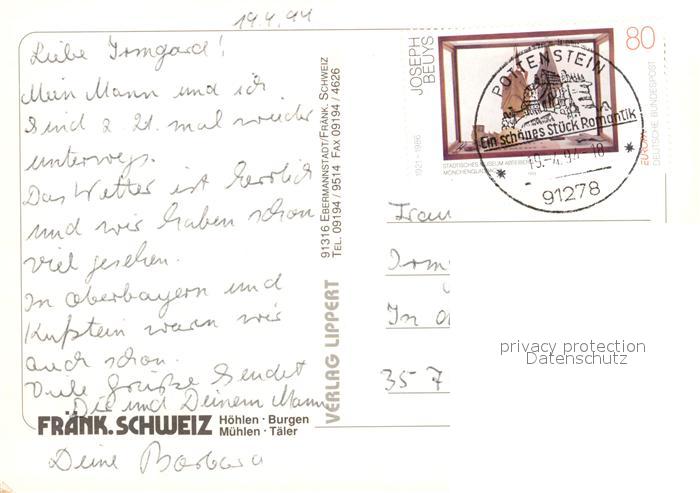 19.4.94
Liebe Irmgard!
Mein Mann und ich
sind z. Zt. mal wieder
unterwegs.
Das Wetter ist herrlich
und wir haben schon
viel gesehen.
In Oberbayern und
Kufstein waren wir
auch schon.
Viele Grüße sendet
Dir und Deinem Mann
Deine Barbara
FRÄNK. SCHWEIZ
Höhlen · Burgen
Mühlen · Täler
VERLAG LIPPERT
91316 EBERMANNSTADT/FRÄNK. SCHWEIZ
TEL. 09194 / 9514 FAX 09194 / 4626
JOSEPH
BEUYS
1921 - 1986
80
DEUTSCHE BUNDESPOST
EUROPA
STÄDTISCHES MUSEUM
MÖNCHENGLADBACH
POTTENSTEIN
Ein schönes Stück Romantik
19.-4.94-18
91278
Frau
Irm
In d
35 7
privacy protection
Datenschutz